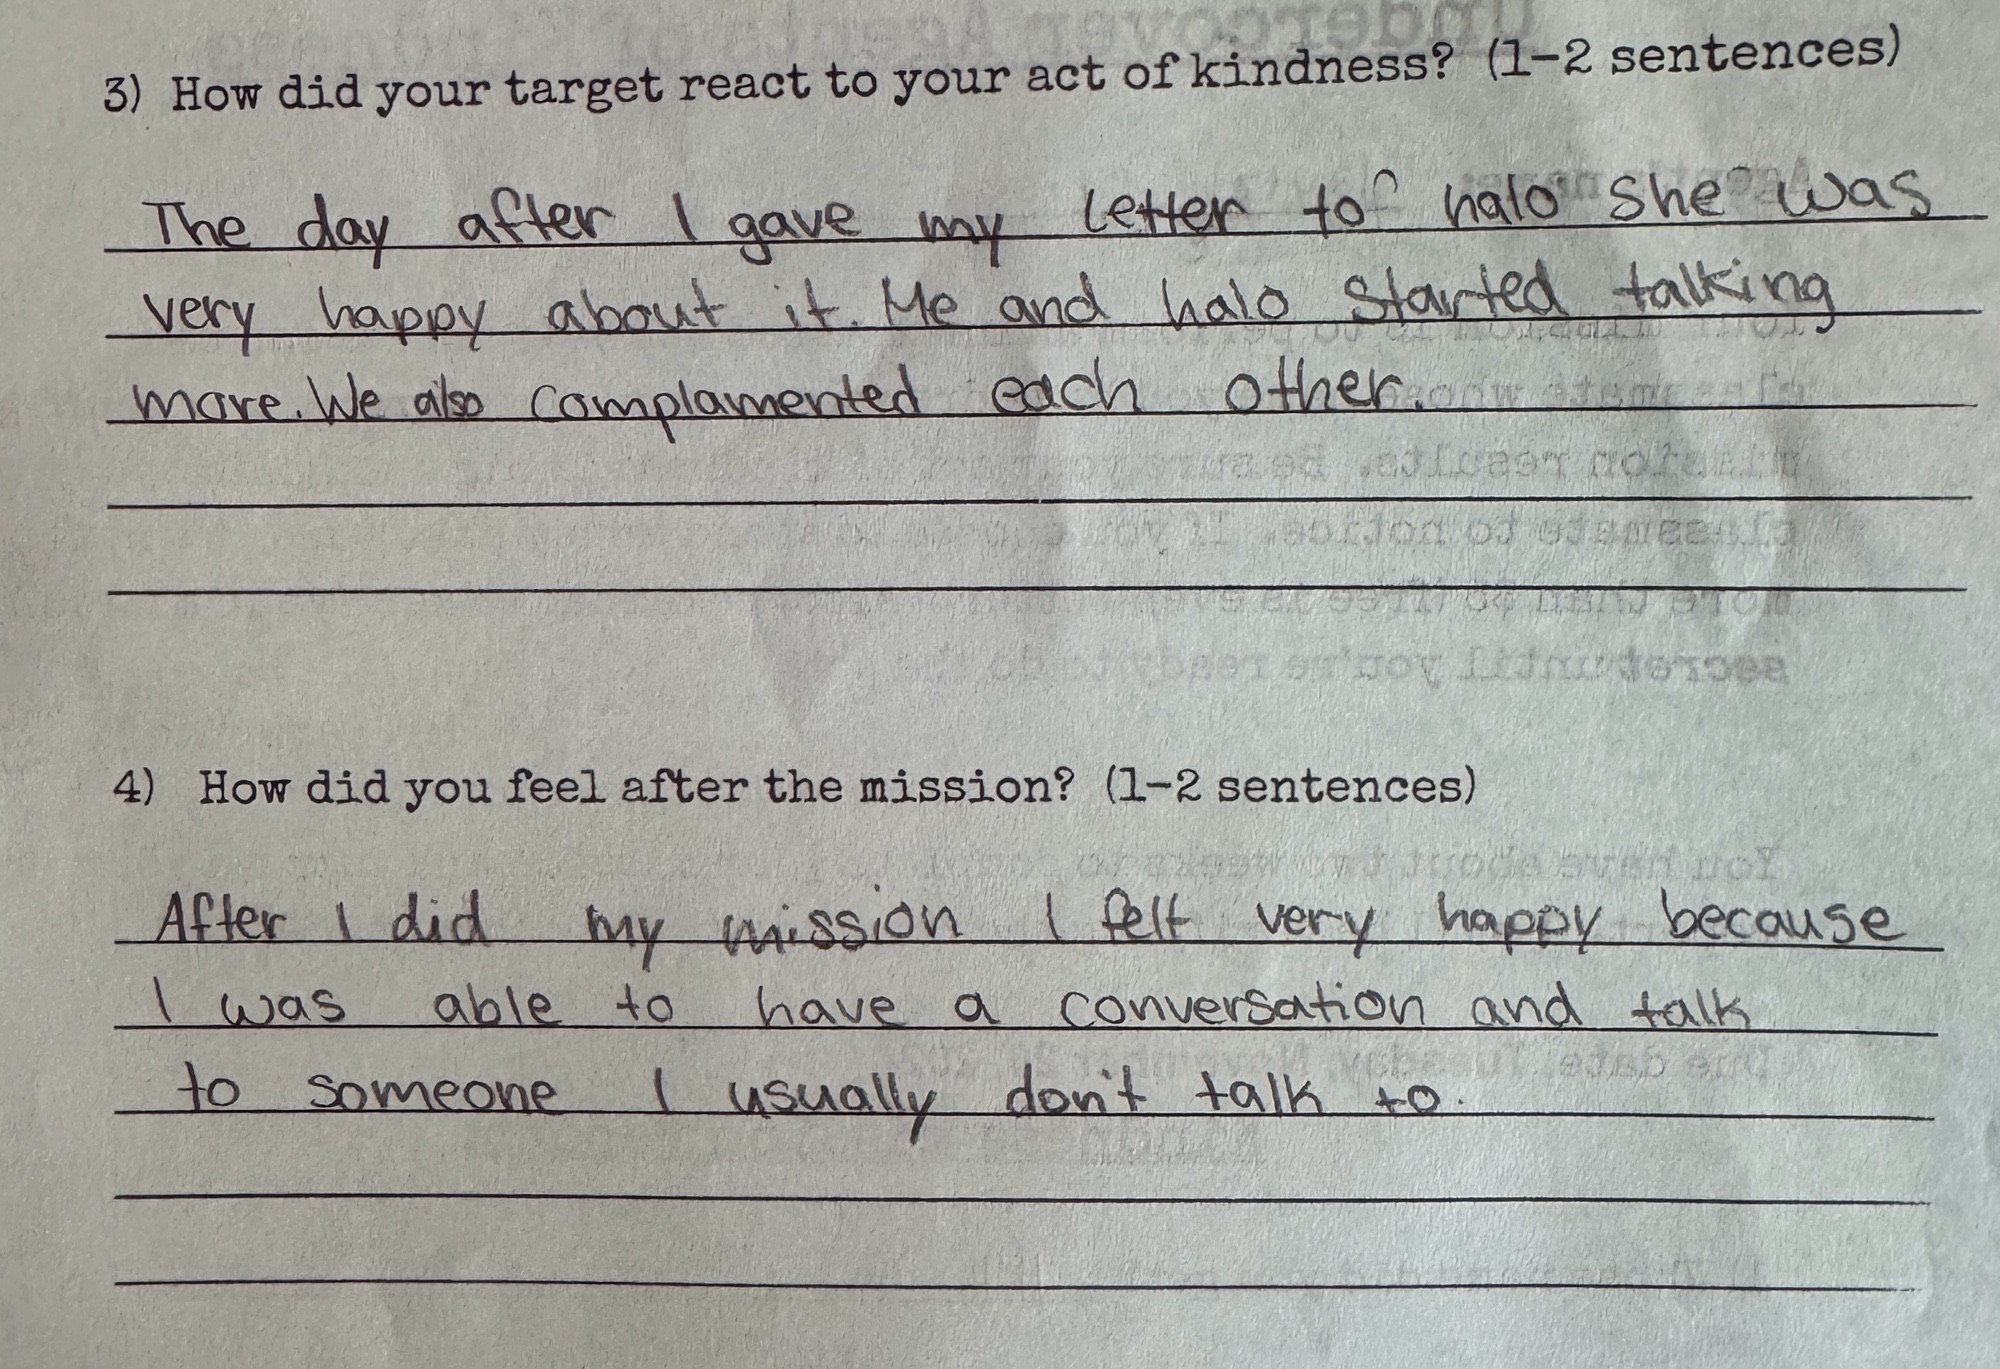 3) How did your target react to your act of kindness? (1-2 sentences)
The day after I gave my letter to halo she was
very happy about it. Me and halo started talking
more. We also complamented each other.
4) How did you feel after the mission? (1-2 sentences)
After I did my mission I felt very happy because
I was able to have a conversation and talk
to someone I usually don't talk to.